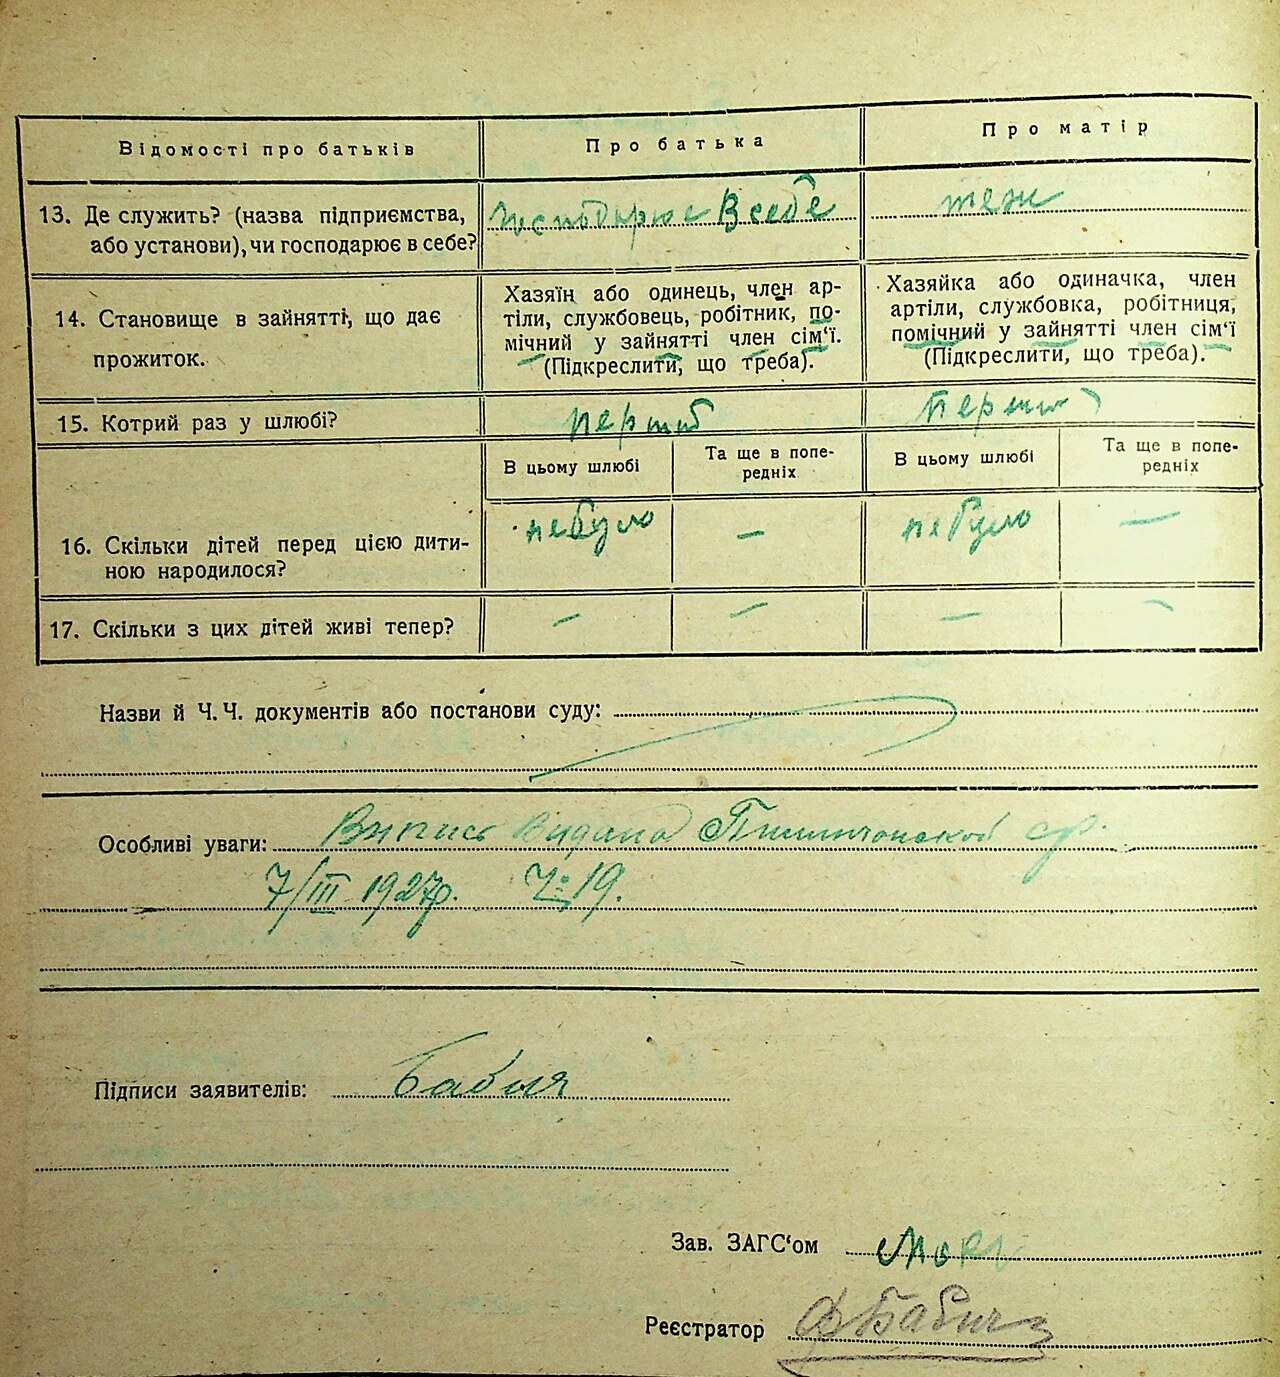 Відомості про батьків
Про батька
Про матір
13. Де служить? (назва підприємства,
або установи), чи господарює в себе?
господарює В себе
теж
14. Становище в зайнятті, що дає
прожиток.
Хазяїн або одинець, член ар-
тіли, службовець, робітник, по-
мічний у зайнятті член сім‘ї.
(Підкреслити, що треба).
Хазяйка або одиначка, член
артіли, службовка, робітниця,
помічний у зайнятті член сім‘ї
(Підкреслити, що треба).
15. Котрий раз у шлюбі?
перший
перший
В цьому шлюбі
Та ще в попе-
редніх
В цьому шлюбі
Та ще в попе-
редніх
16. Скільки дітей перед цією дити-
ною народилося?
небуло
—
не було
—
17. Скільки з цих дітей живі тепер?
—
—
—
—
Назви й Ч. Ч. документів або постанови суду:
Особливі уваги: Випись Видана ср.
7/III 1927р. Ч: 19.
Підписи заявителів:
Зав. ЗАГС‘ом
Реєстратор ФБабич